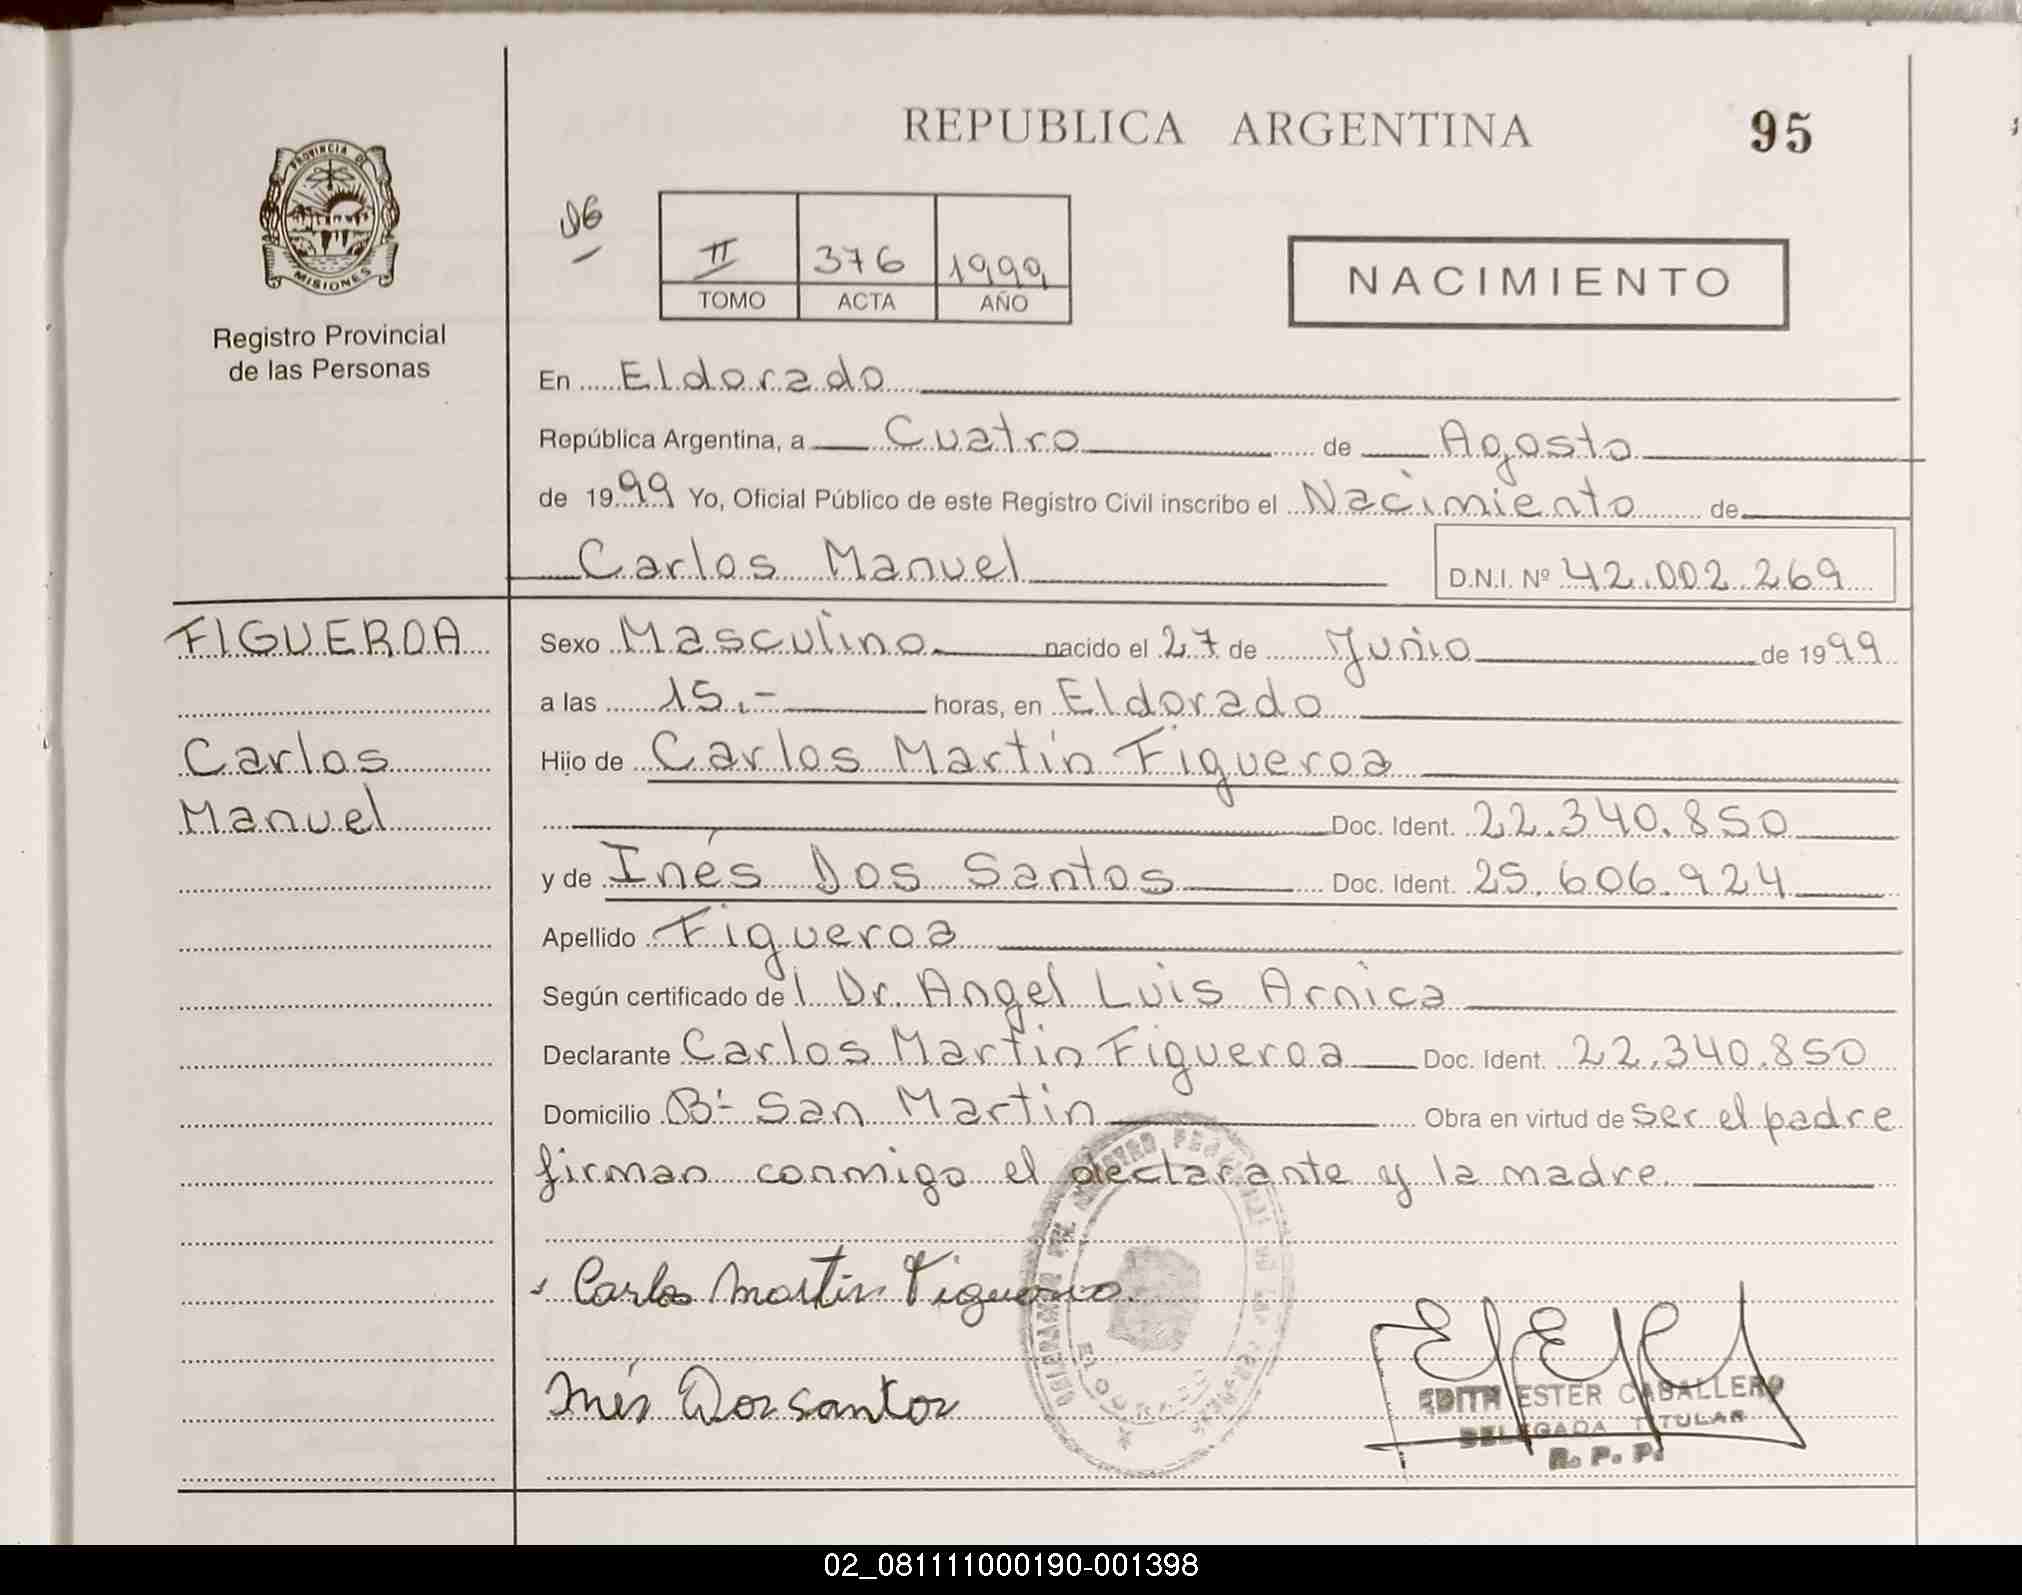 REPUBLICA ARGENTINA
95
PROVINCIA DE
MISIONES
Registro Provincial
de las Personas
II 376 1999
TOMO ACTA AÑO
NACIMIENTO
En Eldorado
República Argentina, a Cuatro de Agosto
de 1999 Yo, Oficial Público de este Registro Civil inscribo el Nacimiento de
Carlos Manuel
D.N.I. Nº 42.002.269
FIGUEROA
Carlos
Manuel
Sexo Masculino nacido el 27 de Junio de 1999
a las 15.- horas, en Eldorado
Hijo de Carlos Martín Figueroa
Doc. Ident. 22.340.850
y de Inés Dos Santos Doc. Ident. 25.606.924
Apellido Figueroa
Según certificado del Dr. Angel Luis Arnica
Declarante Carlos Martín Figueroa Doc. Ident. 22.340.850
Domicilio Bº San Martín Obra en virtud de ser el padre
firman conmigo el declarante y la madre
Carlos Martin Figueroa
Inés Dos santos
EDITH ESTER CABALLERO
DELEGADA TITULAR
R. P. P.
02_081111000190-001398